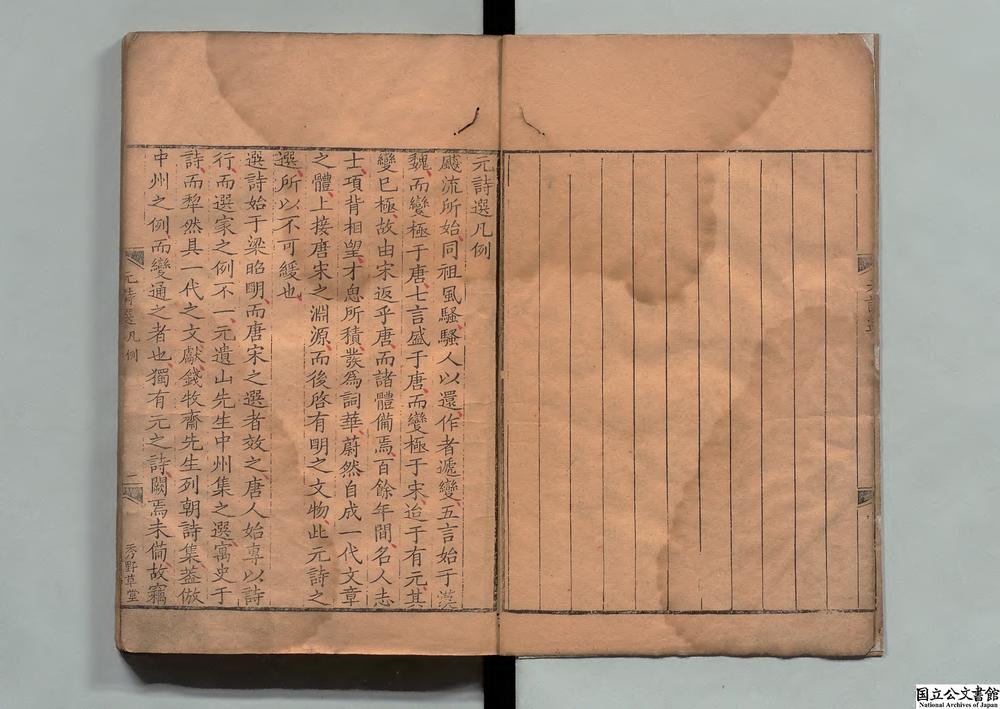 元詩選凡例
飈流所始同祖風騷騷人以還作者遞變五言始于漢
魏而變極于唐七言盛于唐而變極于宋迨于有元其
變已極故由宋返乎唐而諸體備焉百餘年間名人志
士項背相望才思所積發爲詞華蔚然自成一代文章
之體上接唐宋之淵源而後啓有明之文物此元詩之
選所以不可緩也
選詩始于梁昭明而唐宋之選者效之唐人始專以詩
行而選家之例不一元遺山先生中州集之選寓史于
詩而犂然具一代之文獻錢牧齋先生列朝詩集葢倣
中州之例而變通之者也獨有元之詩闕焉未備故竊
元詩選 凡例
一
秀野草堂
元詩選
国立公文書館
National Archives of Japan